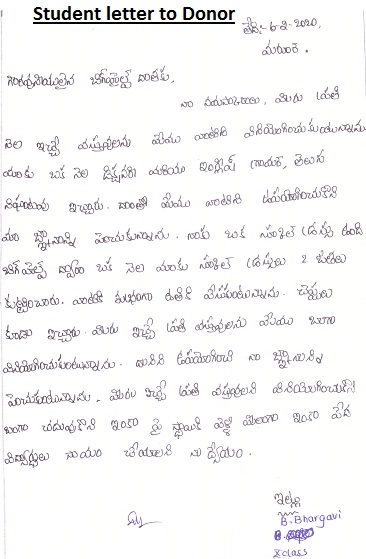 Student letter to Donor
తేది:- 6-2-2020,
మగుంట.
గౌరవనీయులైన బిగ్‌హెల్ప్ దాతకు,
నా నమస్కారాలు, మీరు ప్రతి
నెల ఇచ్చే వస్తువులను మేము వాటిని వినియోగించుకుంటున్నాము
మాకు ఒక నెల డిక్షనరీ మరియు ఇంగ్లీష్ గ్రామర్, తెలుగు
నిఘంటువు ఇచ్చారు. దాంతో మేము వాటిని ఉపయోగించుకొని
మా జ్ఞానాన్ని పెంచుకున్నాము. నాకు ఒక స్కూల్ డ్రస్సు ఉంది
బిగ్‌హెల్ప్ ద్వారా ఒక నెల మాకు స్కూల్ డ్రస్సులు 2 జతలు
కుట్టించారు. వాటిని శుభ్రంగా ఉతికి వేసుకుంటున్నాను. చెప్పులు
కూడా ఇచ్చారు. మీరు ఇచ్చే ప్రతి వస్తువులను మేము బాగా
వినియోగించుకుంటున్నాము. దానిని ఉపయోగించి నా జ్ఞానాన్ని
పెంచుకుంటున్నాను. మీరు ఇచ్చే ప్రతి వస్తువులని వినియోగించుకొని
బాగా చదువుకొని ఇంకా పై స్థాయికి వెళ్ళి మీలాగా ఇంకా పేద
విద్యార్థులు సాయం చేయాలని నా ధ్యేయం.
ఇట్లు
B. Bhargavi
X class